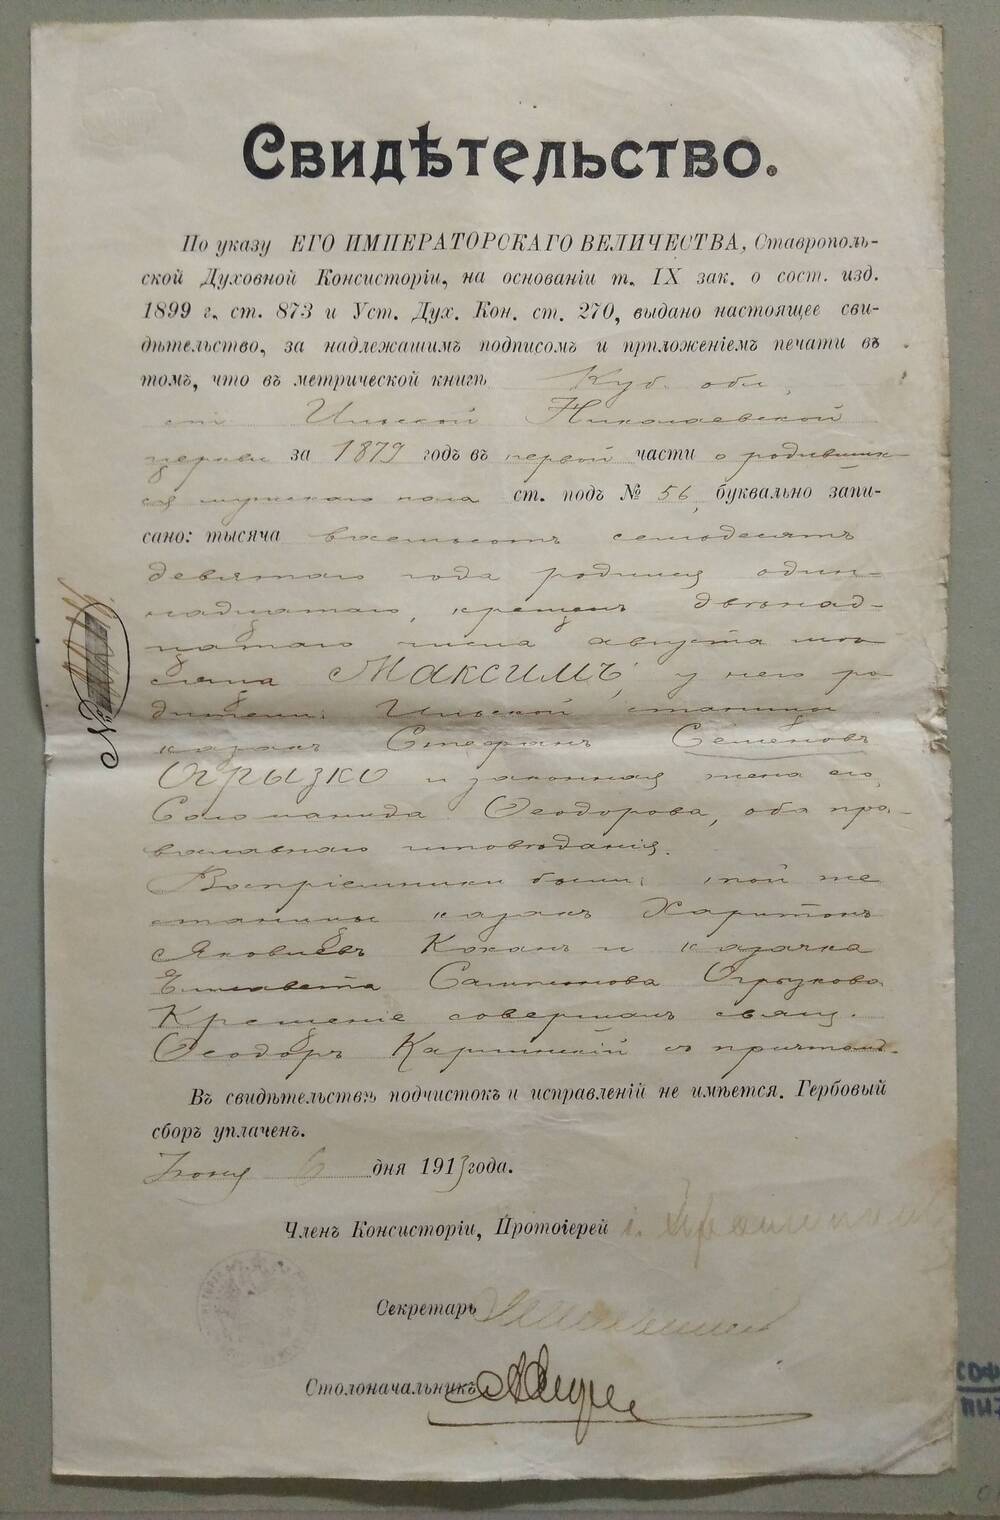 Свидѣтельство.
По указу ЕГО ИМПЕРАТОРСКАГО ВЕЛИЧЕСТВА, Ставрополь-
ской Духовной Консисторіи, на основаніи т. IX зак. о сост. изд.
1899 г., ст. 873 и Уст. Дух. Кон. ст. 270, выдано настоящее сви-
дѣтельство, за надлежащимъ подписомъ и приложеніемъ печати въ
томъ, что въ метрической книгѣ Куб. обл.,
ст. Ильской Николаевской
церкви за 1879 годъ въ первой части о родивших-
ся мужскаго пола ст. подъ № 56, буквально запи-
сано: тысяча восемьсотъ семьдесятъ
девятаго года родился один-
надцатаго, крещенъ двѣнад-
цатаго числа августа
Максимъ, у него ро-
дители: Ильской станицы
казакъ Стефанъ Семёновъ
Огрызко и законная жена его
Соломанида Ѳеодорова, оба пра-
вославнаго исповѣданія.
Воспріемники были: той же
станицы казакъ Харитонъ
Яковлевъ Коханъ и казачка
Елисавета Сампсонова Огрызкова
Крещеніе совершалъ свящ.
Ѳеодоръ Карпинскій съ причтомъ.
Въ свидѣтельствѣ подчистокъ и исправленій не имѣется. Гербовый
сборъ уплаченъ.
Іюня 6 дня 1913 года.
Членъ Консисторіи, Протоіерей І.
Секретарь
Столоначальникъ
№